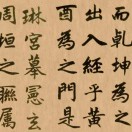 而乾坤為之
出入經乎黃
酉為之門是
琳宮摹憲玄
周垣之聯屬